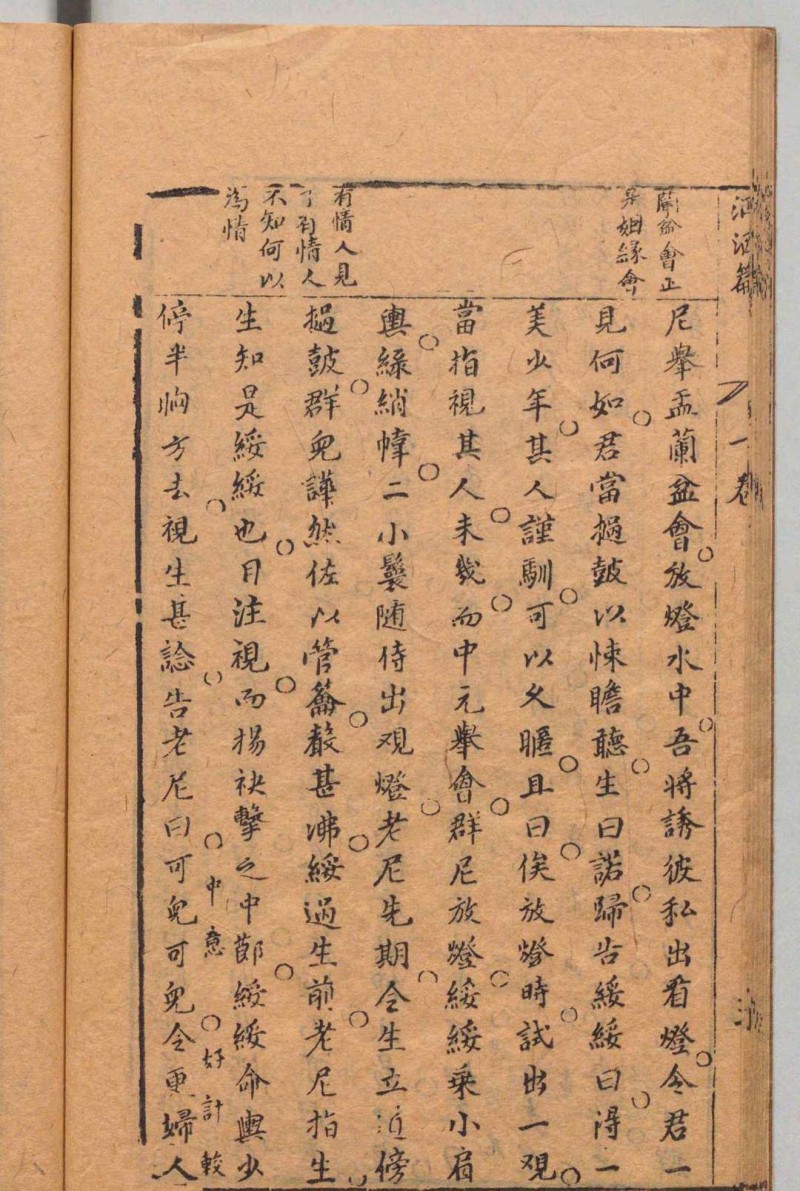 洒洒篇
一卷
蘭盆會正
是姻緣會
尼舉盂蘭盆會放燈水中吾將誘彼私出看燈令君一
見何如君當撾鼓以悚瞻聽生曰諾歸告綏綏曰得一
美少年其人謹馴可以久暱且曰俟放燈時試出一覌
當指視其人未幾而中元舉會群尼放燈綏綏乘小肩
輿綠綃幃二小鬟随侍出观燈老尼先期令生立近傍
有情人見
了有情人
不知何以
為情
撾鼓群兒譁然佐以管籥聲甚沸綏過生前老尼指生
生知是綏綏也目注視而揚袂擊之中節綏綏命輿少
中意
好計較
停半晌方去視生甚諗告老尼曰可兒可兒令更婦人